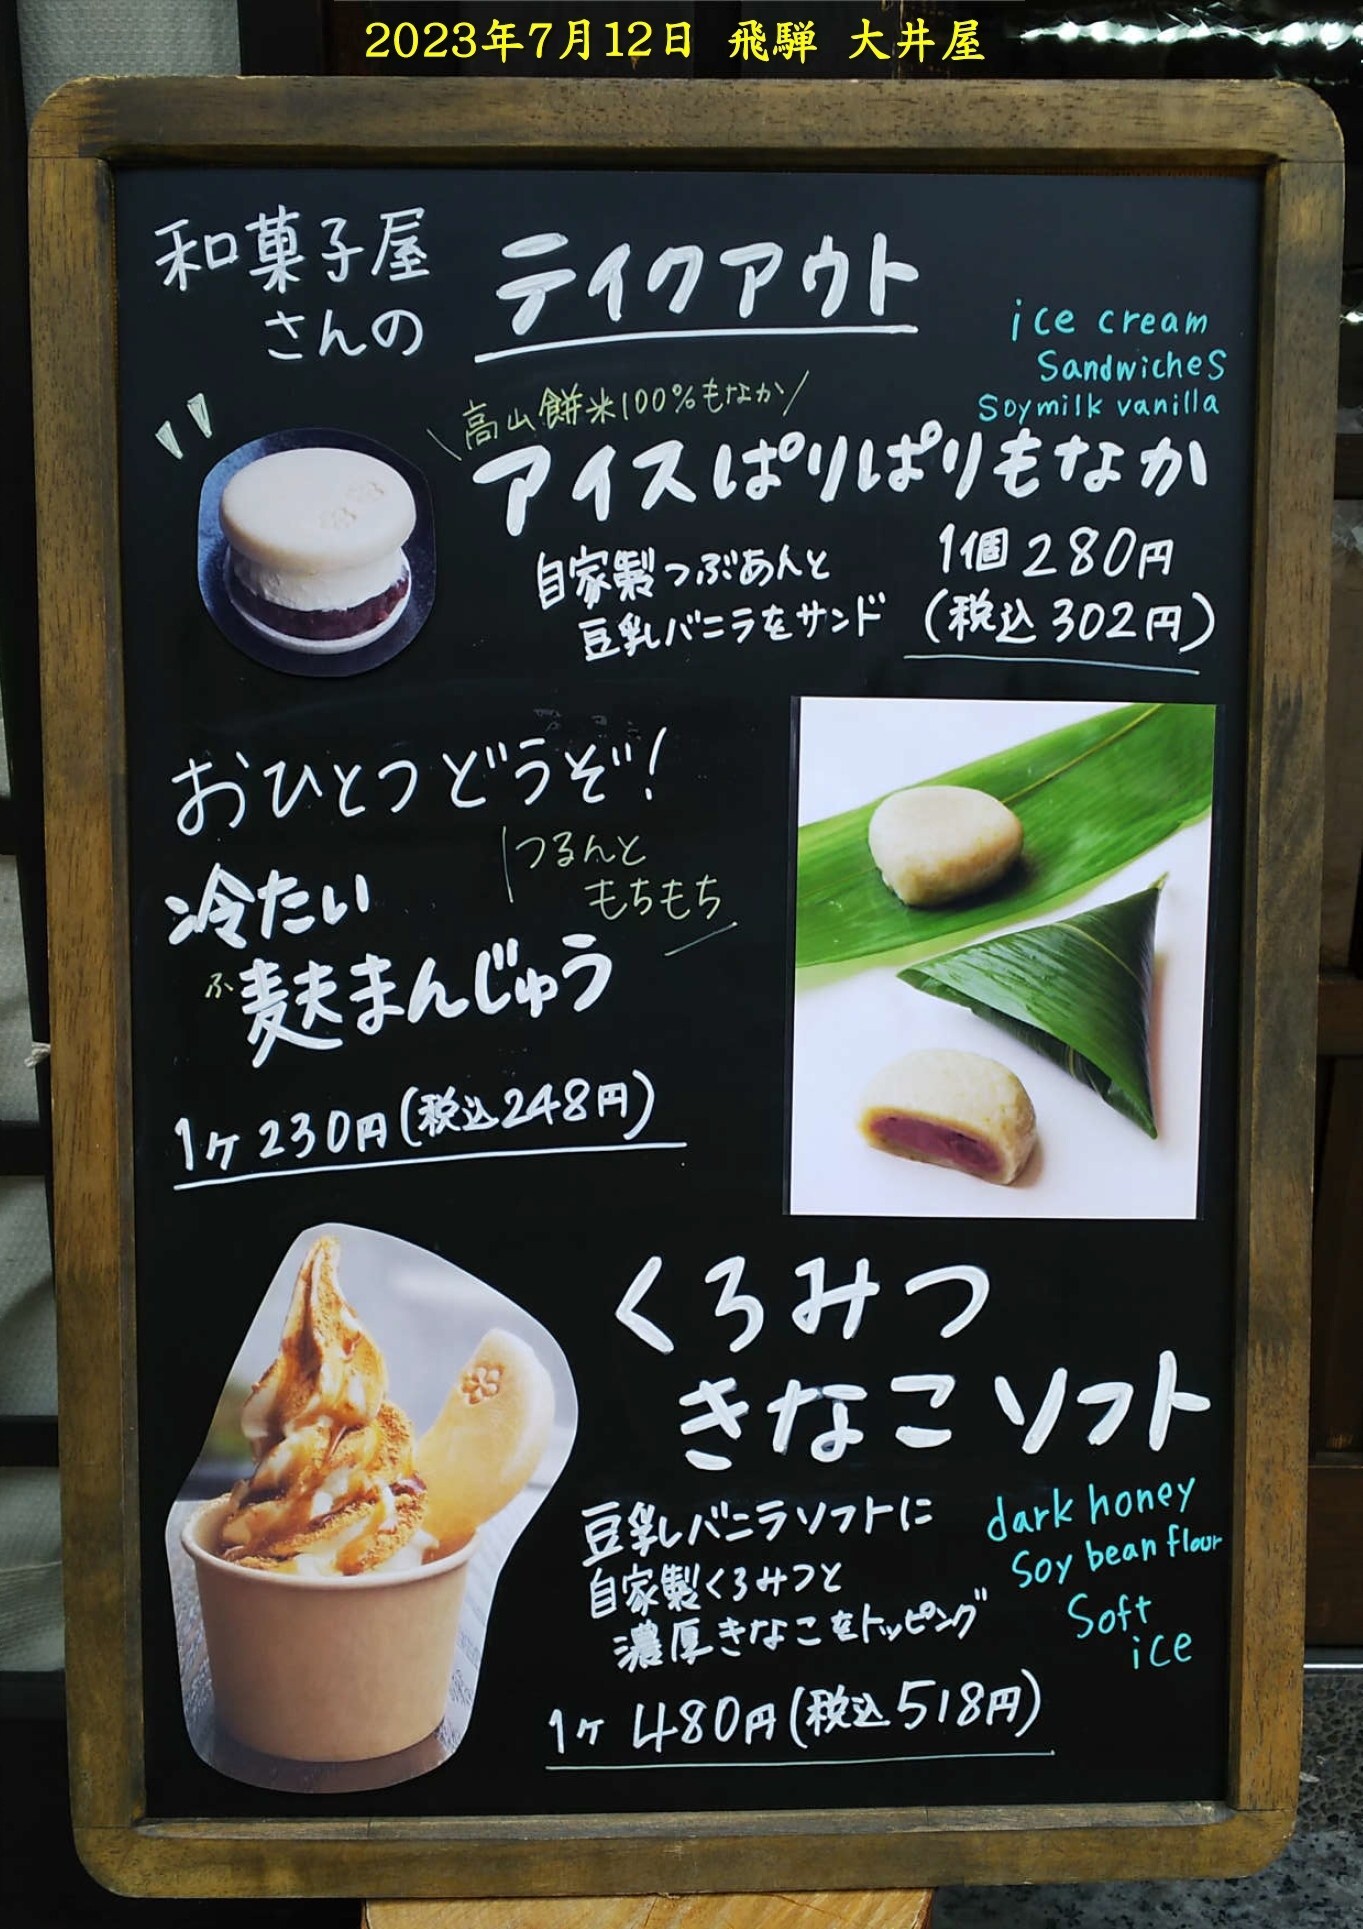 2023年7月12日 飛騨 大井屋
和菓子屋
さんの
テイクアウト
ice cream
sandwiches
soymilk vanilla
高山餅米100%もなか
アイスぱりぱりもなか
自家製つぶあんと
豆乳バニラをサンド
1個280円
(税込302円)
おひとつどうぞ!
つるんと
もちもち
冷たい
ふ
麩まんじゅう
1ケ230円(税込248円)
くろみつ
きなこソフト
豆乳バニラソフトに
自家製くろみつと
濃厚きなこをトッピング
dark honey
soy bean flour
soft
ice
1ケ 480円(税込518円)